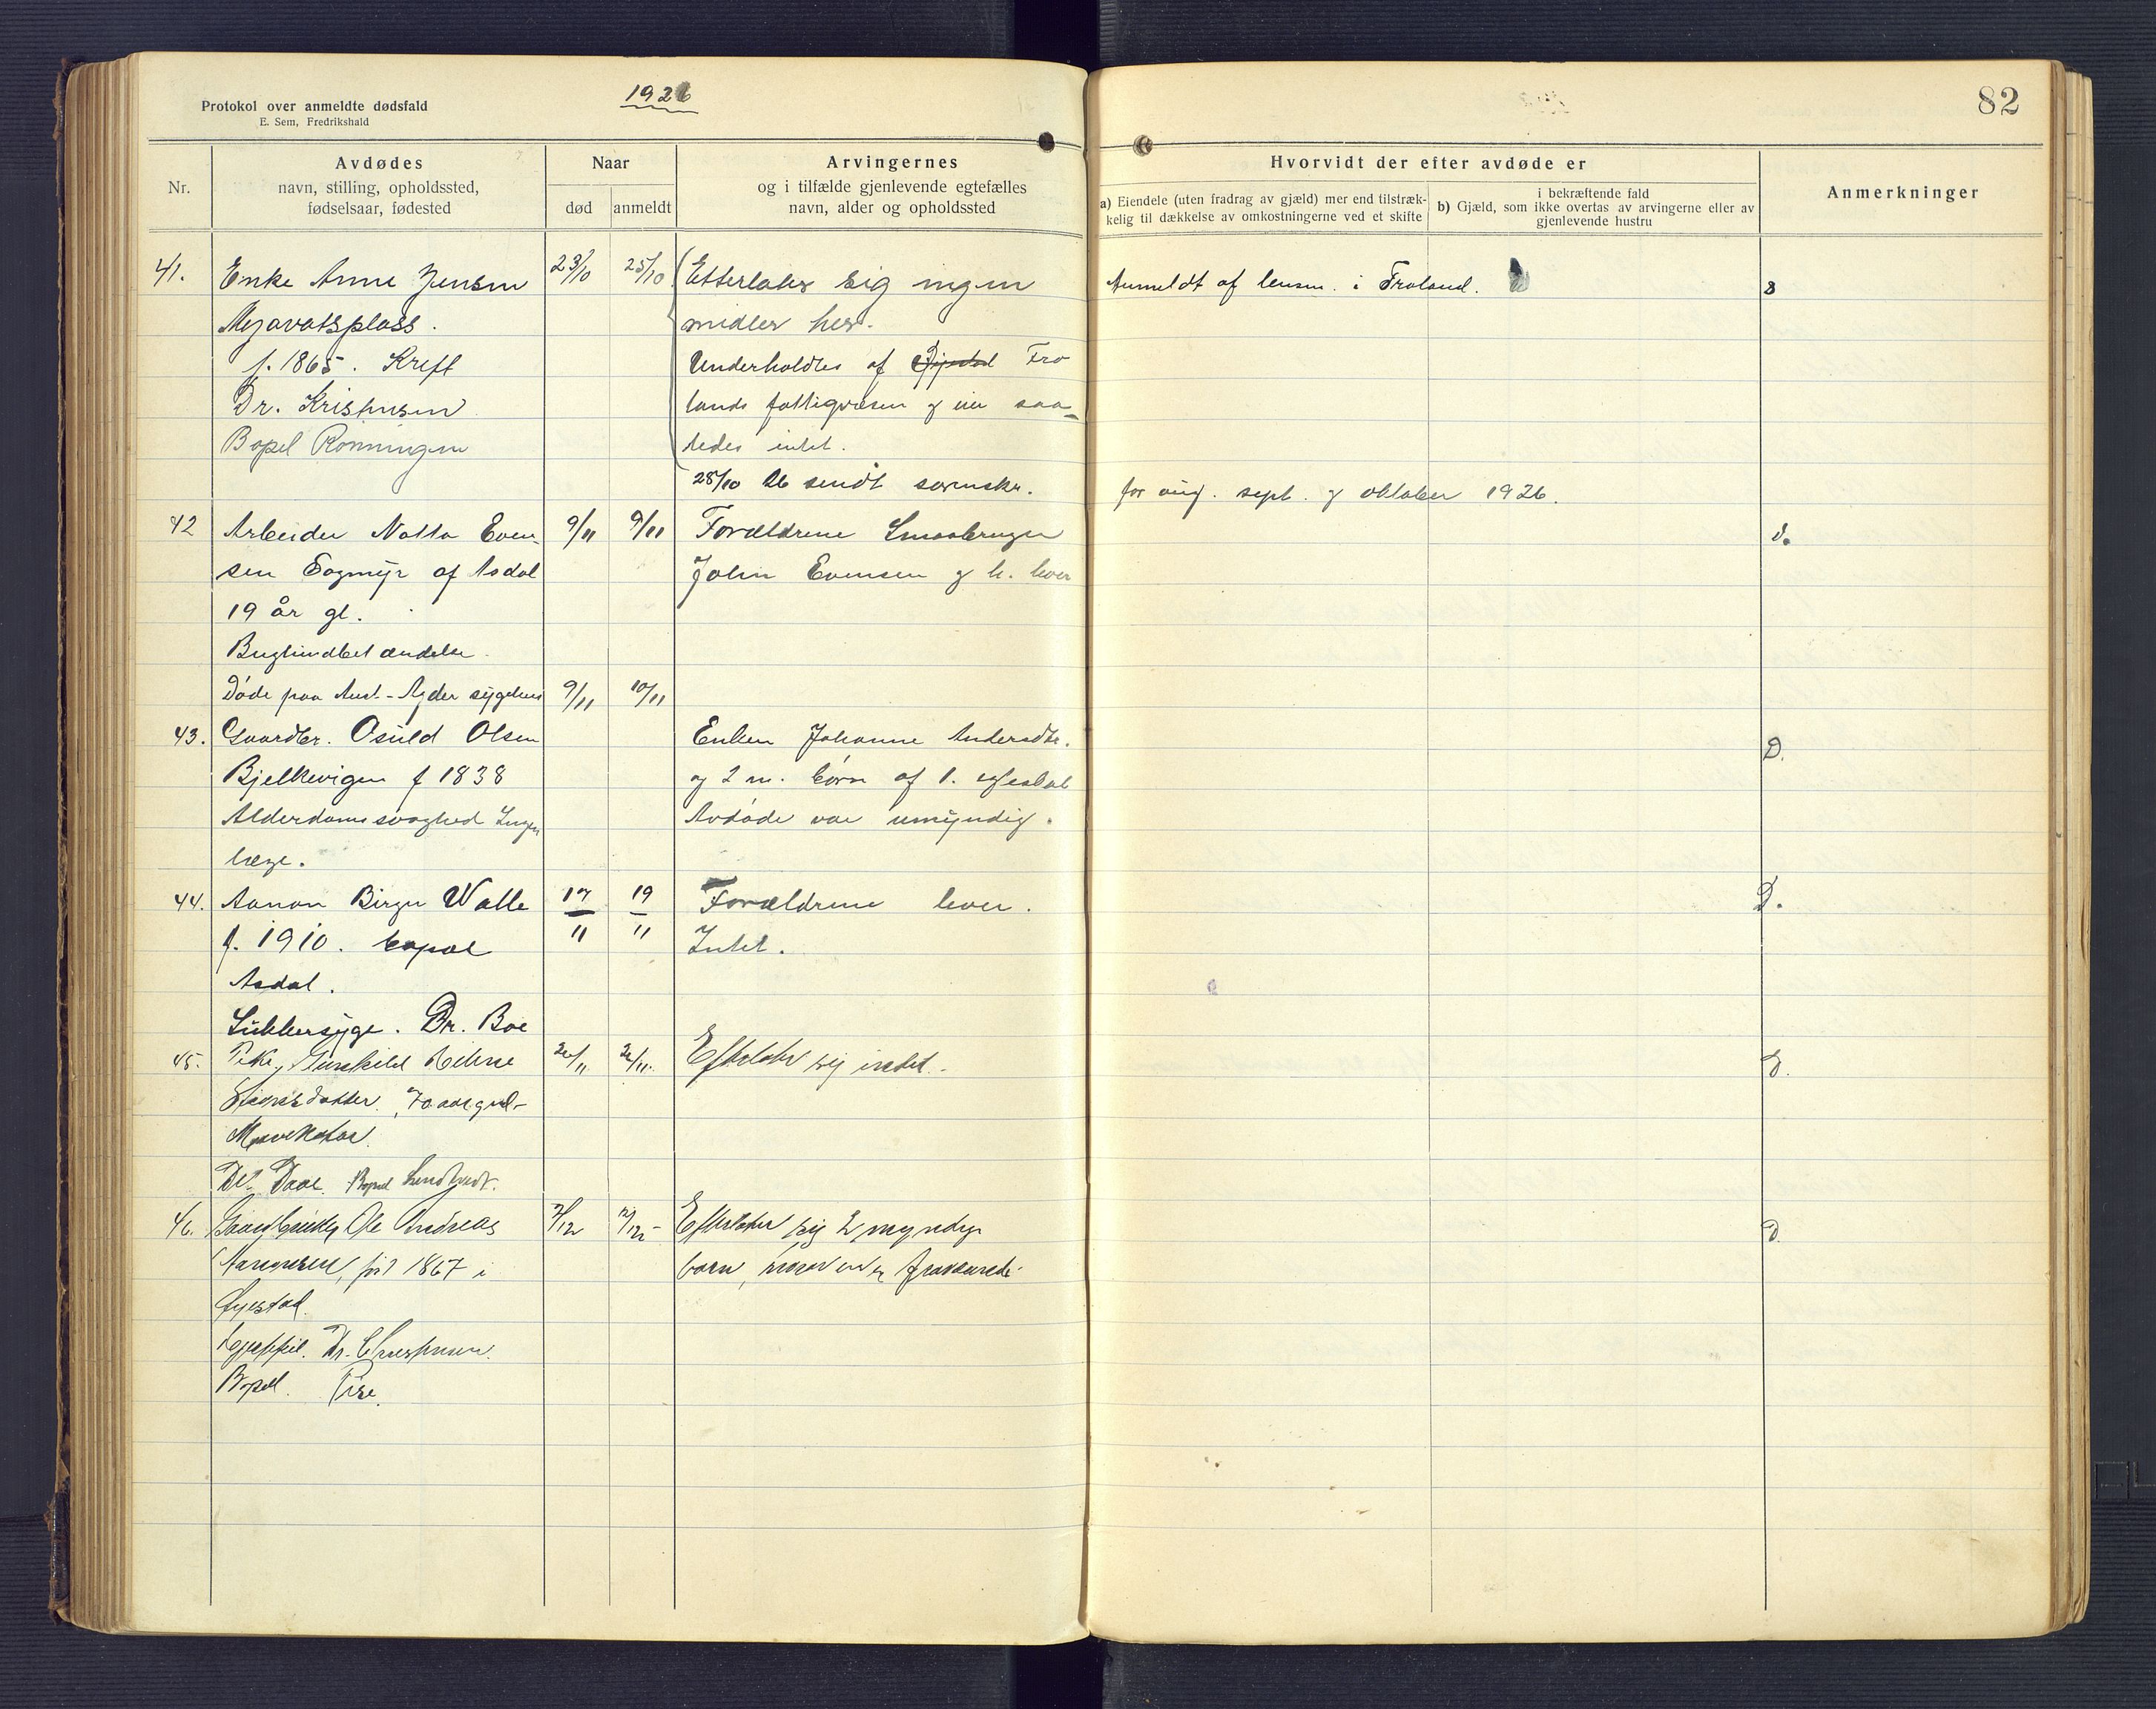 Protokol over anmeldte dødsfald
E. Sem, Fredrikshald
1926
82
Nr.
Avdødes
navn, stilling, opholdssted,
fødselsaar, fødested
Naar
død
anmeldt
Arvingernes
og i tilfælde gjenlevende egtefælles
navn, alder og opholdssted
Hvorvidt der efter avdøde er
a) Eiendele (uten fradrag av gjæld) mer end tilstræk-
kelig til dækkelse av omkostningerne ved et skifte
i bekræftende fald
b) Gjæld, som ikke overtas av arvingerne eller av
gjenlevende hustru
Anmerkninger
41.
Enke Anne Jensen
f. 1865. Kreft
Dr. Kristensen
Bopel Rønningen
23/10
25/10
Efterlater sig ingen
midler her.
Underholdtes af Fro
lands fattigvæsen og eier saa-
ledes intet.
28/10 26 sendt sorenskr.
Anmeldt af lensm. i Froland.
for aug. sept. og oktober 1926.
42
Arbeider Notto Even-
sen af Asdal
19 år gl.
Bughindbetændelse
Døde paa Aust-Agder sygehus
9/11
9/11
9/11
10/11
Forældrene Smaabruger
John Evensen og h. lever
43.
Gaardbr. Osuld Olsen
Bjelkevigen f 1838
Alderdomssvaghed Ingen
læge.
Enken Johanne Andersdtr.
og 2 m. børn af 1. egteskab
Avdøde var umyndig.
D.
44.
Aanon Birger Walle
f. 1910. bopæl
Asdal.
Sukkersyge. Dr. Boe
17
11
19
11
Forældrene lever.
Intet.
D.
45.
Pike, Gunhild Helene
70 aar gml-
Efterlater sig intet.
46.
Gaardbruker Ole Andreas
født 1867 i
Øyestad
Dr. Christensen.
Bopel.
Efterlater sig 2 myndige
barn, hvorav en er fraværende